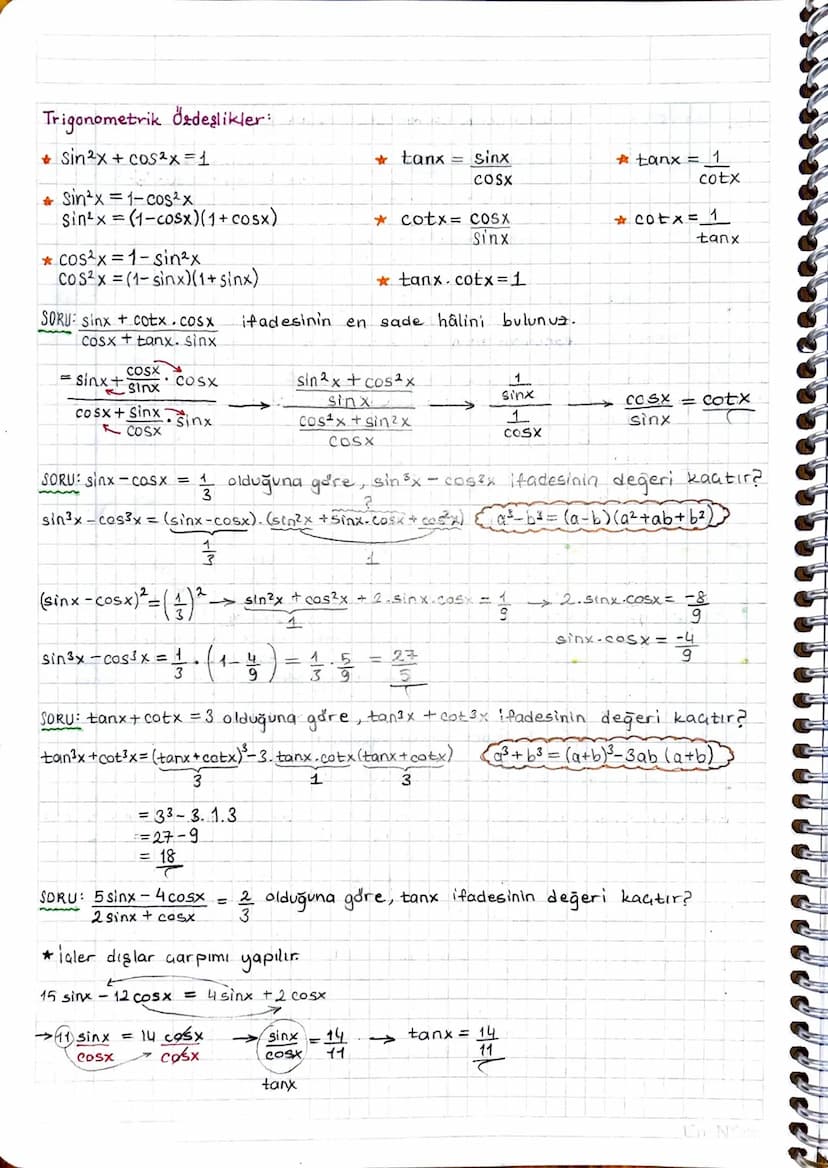 Trigonometrik Özdeşlikler:
★ sin²x + cos²x = 1
★ tanx = sinx/cosx
★ tanx = 1/cotx
★ sin²x = 1-cos²x
sin²x = (1-cosx)(1+cosx)
★ cotx = cosx/sinx
★ cotx = 1/tanx
★ cos²x = 1-sin²x
cos²x = (1-sinx)(1+sinx)
★ tanx.cotx = 1
SORU: (sinx + cotx.cosx)/(cosx + tanx.sinx) ifadesinin en sade hâlini bulunuz.
= (sinx + cosx/sinx . cosx)/(cosx + sinx/cosx . sinx) → ((sin²x + cos²x)/sinx)/((cos²x + sin²x)/cosx) → (1/sinx)/(1/cosx) → cosx/sinx = cotx
SORU: sinx - cosx = 1/3 olduğuna göre, sin³x - cos³x ifadesinin değeri kaçtır?
sin³x - cos³x = (sinx-cosx).(sin²x + sinx.cosx + cos²x) a³-b³ = (a-b)(a²+ab+b²)
?
1/3 1
(sinx - cosx)² = (1/3)² → sin²x + cos²x + 2.sinx.cosx = 1/9 → 2.sinx.cosx = -8/9
1
sinx.cosx = -4/9
sin³x - cos³x = 1/3 . (1 - 4/9) = 1/3 . 5/9 = 27/5
SORU: tanx + cotx = 3 olduğuna göre, tan³x + cot³x ifadesinin değeri kaçtır?
tan³x + cot³x = (tanx+cotx)³ - 3.tanx.cotx(tanx+cotx) a³+b³ = (a+b)³-3ab(a+b)
3 1 3
= 3³ - 3.1.3
= 27 - 9
= 18
SORU: (5sinx - 4cosx)/(2sinx + cosx) = 2/3 olduğuna göre, tanx ifadesinin değeri kaçtır?
★ İçler dışlar çarpımı yapılır.
15 sinx - 12 cosx = 4 sinx + 2 cosx
→ 11 sinx/cosx = 14 cosx/cosx → sinx/cosx = 14/11 → tanx = 14/11
tanx